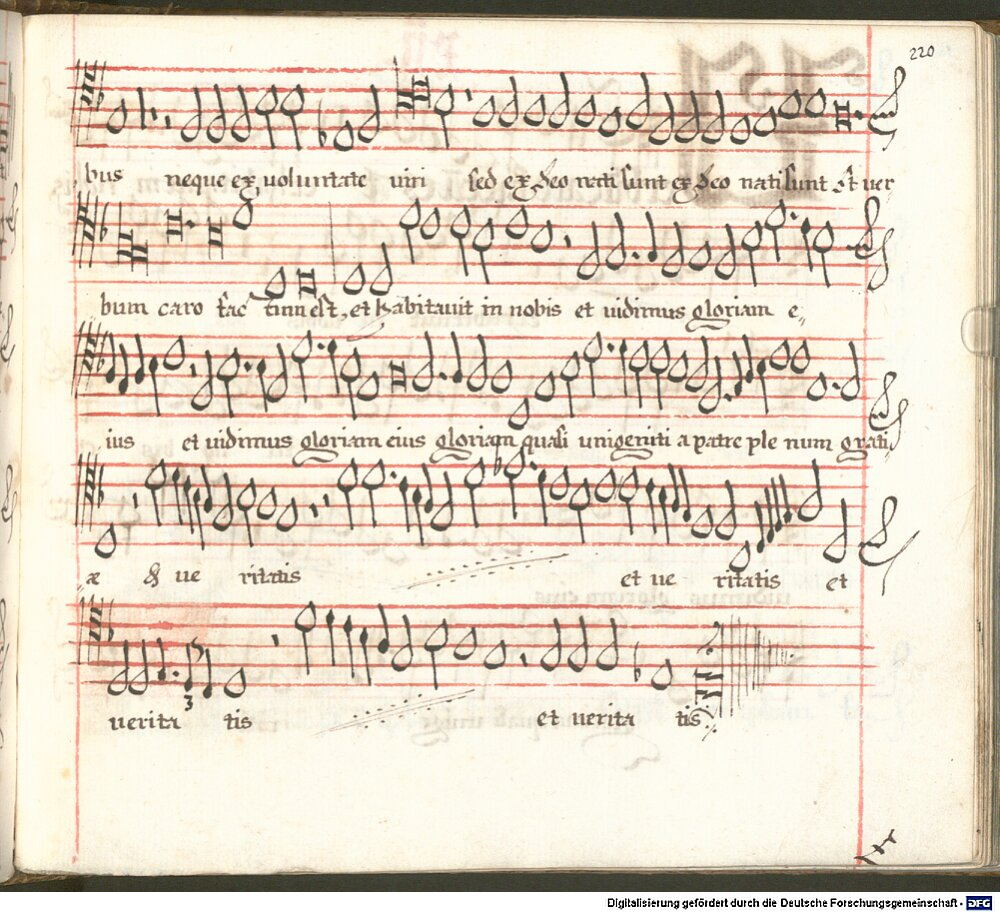 220
bus neque ex uoluntate uiri sed ex deo nati sunt ex deo nati sunt Et ver
bum caro fac tum est, et habitauit in nobis et uidimus gloriam e
ius et uidimus gloriam eius gloriam quasi unigeniti a patre ple num grati
æ & ue ritatis et ue ritatis et
uerita tis et uerita tis
3
Digitalisierung gefördert durch die Deutsche Forschungsgemeinschaft - DFG